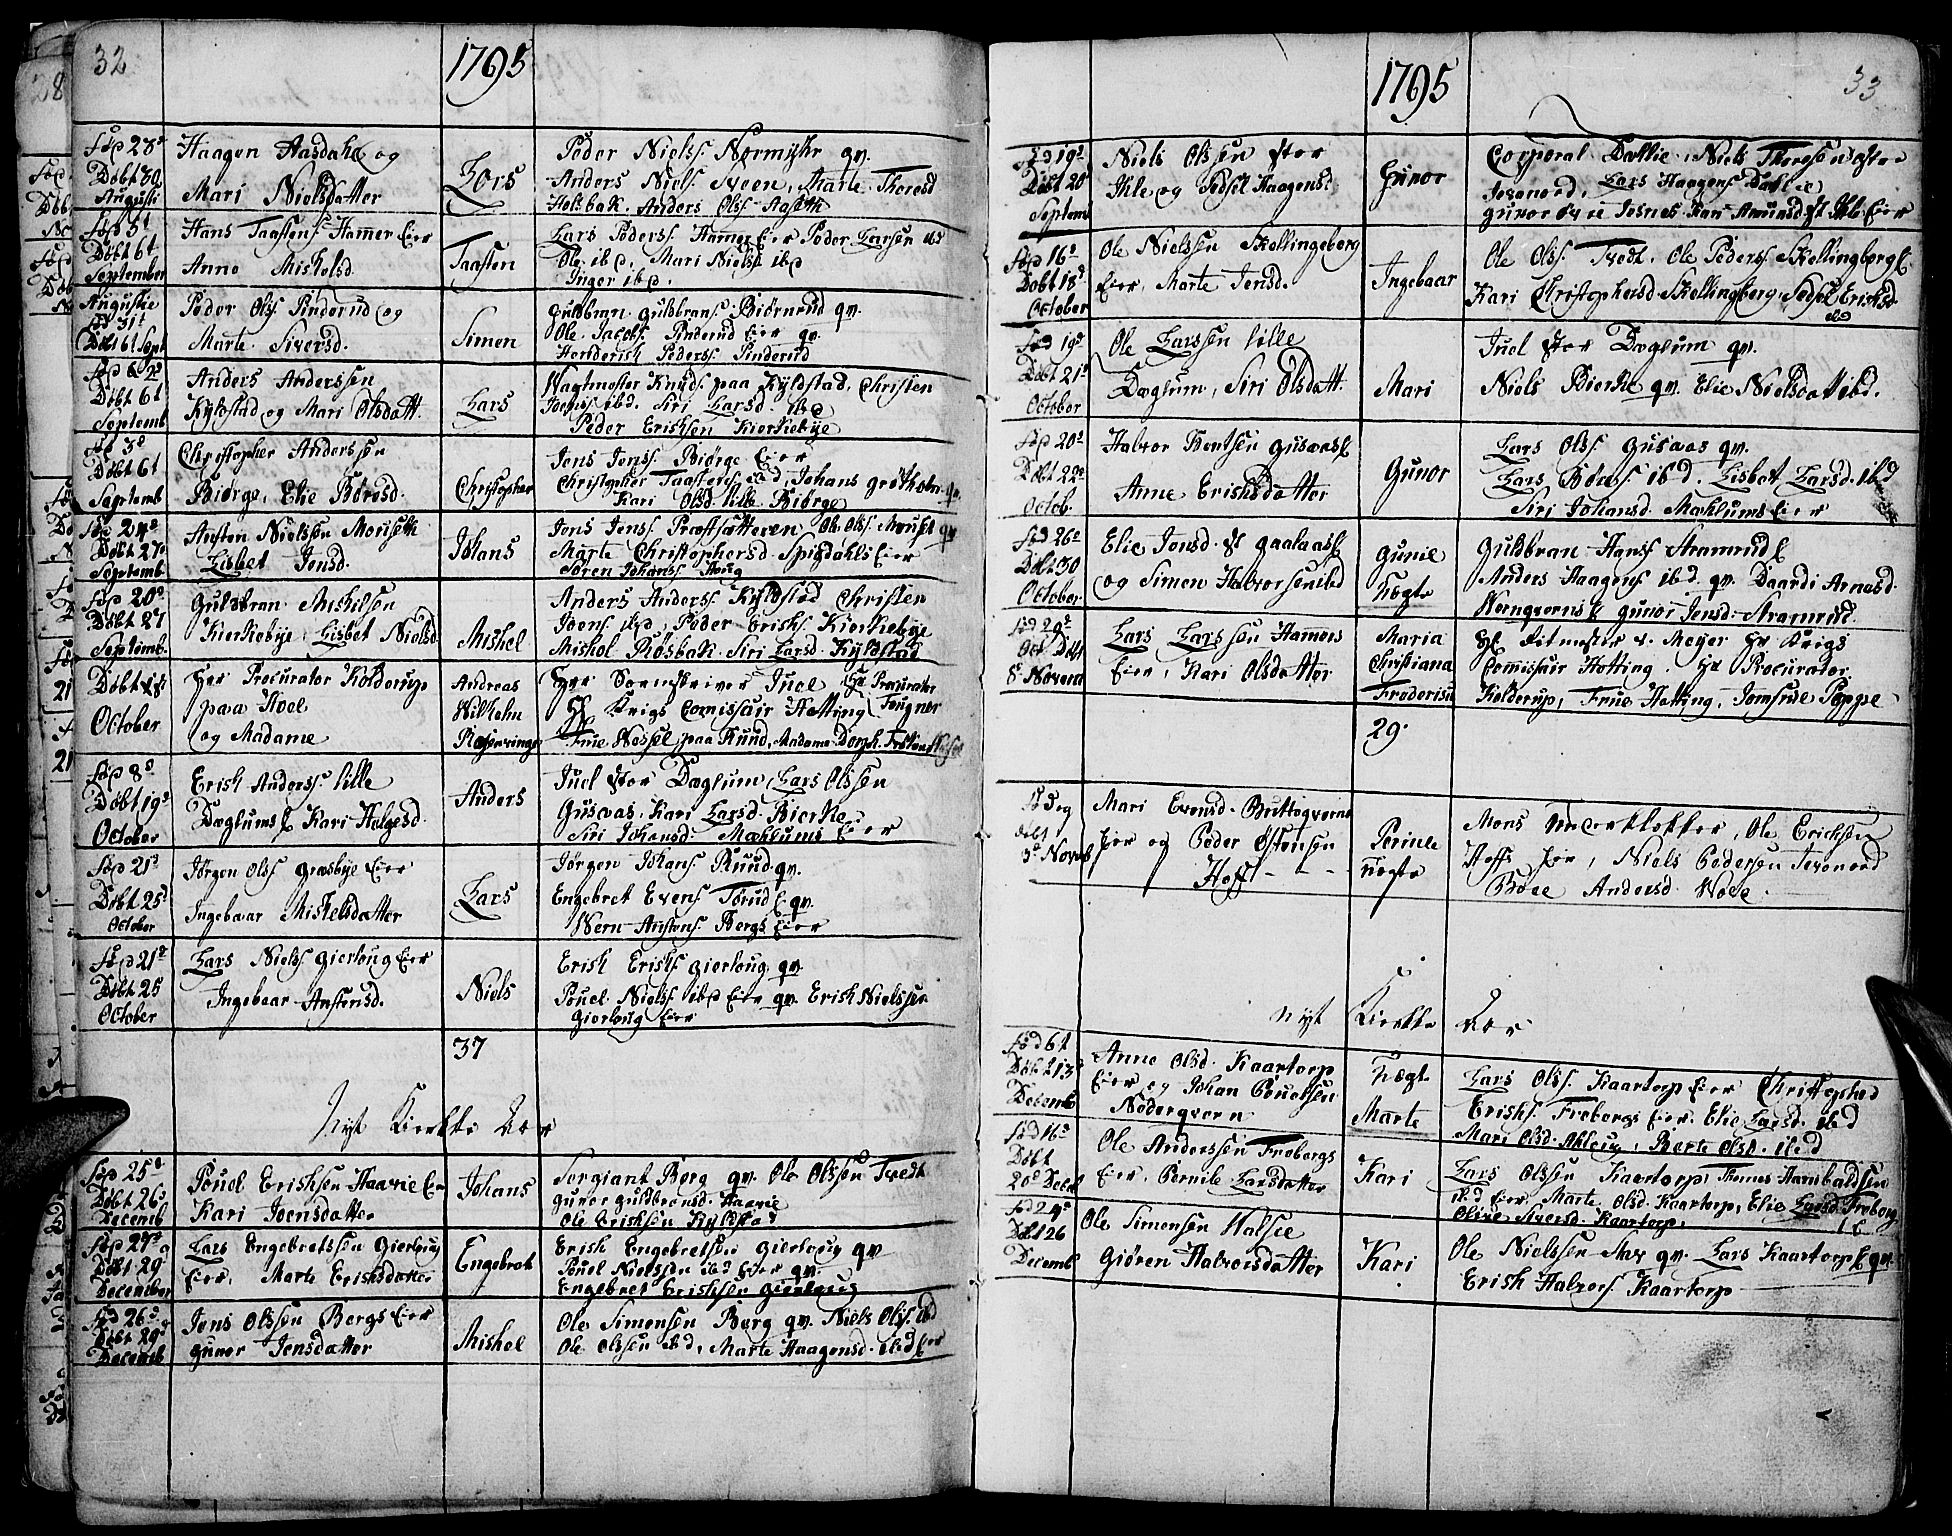 32
1795
Fød 28de
Døbt 30
Augusti
Haagen Aasdahl og
Mari Nielsdatter
Lars
Peder Niels. Nørmyhr qv.
Anders Niels. Sveen, Marte Thoresd
Holsbak. Anders Ols. Aaseth
Fød 5t
Døbt 6t
September
Hans Taasten. Hammer Eier
Anne Mickelsd.
Taasten
Lars Peders. Hammer Eier Peder Larsen ibd
Ole ibd. Mari Niels. ibd
Inger ibd.
Augustie
Fød 31t
Døbt 6t Sept
Peder Ols. Pinderud og
Marte Siversd.
Simen
Guldbran. Guldbrans. Biørnerud qv.
Ole Jacobs. Pinderud Eier qv.
Henderich Peders. Pinderud
Fød 2de
Døbt 6t
Septemb
Anders Anderssen
Kyldstad og Mari Olsdatt.
Lars
Wagtmester Knuds. paa Kyldstad, Christen
Joens. ibd. Siri Larsd. ibd
Peder Erichsen Kierkebye
Fød 3de
Døbt 6t
Septemb
Christopher Anderssen
Biørge, Elie Børesd.
Christopher
Jens Jens. Biørge Eier
Christopher Taastens. ibd, Johans Grøtholm qv.
Kari Olsd. lille Biørge
Fød 24de
Døbt 27de
Septemb
Austen Nielssen Moriseth
Lisbet Jensd.
Johans
Jens Jens. Præstsætteren Ole Ols.
Marte Christophersd. Spigdahls Eier
Søren Johans. Houg
Fød 20de
Døbt 27
Septemb.
Guldbran Mickelsen
Kierkebye, Lisbet Nielsd
Mickel
Anders Anders. Kyldstad Christen
Joens. ibd, Peder Erichs. Kierkebye
Mickel Røsbak. Siri Larsd. Kyldstad
Døbt 18
October
Herr Procurator Kolderup
paa Hoel
og Madame
Andreas
Wilhelm
Rosenvinge
Herr Sorenskriver Juel Hr Procurator
Hr Krigs Comissair Hotting Fougner
Frue Wessel paa Rund, Madame Dorph.
Fød 8de
Døbt 19de
October
Erich Anders. lille
Dæglums E Kari Helgesd.
Anders
Juel stor Dæglum, Lars Olssen
Gusvaas, Kari Larsd. Bierke
Siri Johansd. Mæhlums Eier
Fød 21de
Døbt 25de
October
Jørgen Ols. Græsbye Eier
Ingebaar Mickelsdatter
Lars
Jørgen Johans. Ruud qv.
Engebret Evens. Torud E qv.
Wern Austens. Bergs Eier
Fød 21de
Døbt 25
October
Lars Niels. Gierloug Eier
Ingebaar Austensd.
Niels
Erich Erichs. Gierloug qv.
Pouel Niels. ibd Eier qv. Erich Nielssen
Gierloug Eier
37
Nyt Kierke Aar
Fød 25de
Døbt 26de
Decemb
Pouel Erichsen Haavie Eier
Kari Joensdatter
Johans
Sergiant Berg qv. Ole Olssen Tvedt
Gunor Guldbransd. Haavie
Ole Erichsen Kyldstad
Fød 27de
Døbt 29
December
Lars Engebretssen Gierloug
Eier, Marte Erichsdatter
Engebret
Erich Engebretsen Gierloug qv
Pouel Nielssen ibd Eier qv.
Engebret Erichsen Gierloug
Fød 26de
Døbt 29de
Decemb
Jens Olssen Bergs Eier
Gunor Jensdatter
Mickel
Ole Simensen Berg qv. Niels Ols. ibd
Ole Olssen ibd, Marte Haagensd. ibd Eier
33
1795
Fød 19de
Døbt 20
Septem
Niels Olssen stor
Ihle og Sedsel Haagensd.
Gunor
Corporal Dæhlie, Niels Thoresen store
Josnerd, Lars Haagens. Dæhlie
Gunor Josnes Kari Amunsd St Ihle Eier
Fød 16de
Døbt 18de
October
Ole Nielssen Skellingberg
Eier, Marte Jensd.
Ingebaar
Ole Ols. Tvedt, Ole Peders. Skellingberg E
Kari Christophersd. Skellingberg, Sedsel Erichsd
ibd
Fød 19de
Døbt 21de
October
Ole Larssen lille
Dæglum, Siri Olsdatt.
Mari
Juel stor Dæglum qv.
Niels Bierke qv. Elie Nielsdatt ibd.
Fød 20de
Døbt 22de
Octob.
Halvor Bentsen Gusvaas E
Anne Erichsdatter
Gunor
Lars Ols. Gusvaas qv.
Lars Børes. ibd. Lisbet Larsd. ibd
Siri Johansd. Mæhlums Eier
Fød 26de
Døbt 30
October
Elie Jensd. St Gaalaas E
og Simen Halvorsen ibd
Gunil
Uægte
Guldbran Hans. Stramrud E
Anders Haagens. ibd. qv. Daardi Arnesd.
Wernqverns E Gunor Jensd. Stramrud.
Fød 29de
Oct Døbt
8 Novem
Lars Larssen Hammers
Eier, Kari Olsdatter
Maria
Christiana
Frederica
Hr Ritmester v. Meyer Hr Krigs
Comissair Hotting, Hr Procurator
Kolderup, Frue Hotting, Jomfrue Poppe
29.
Fød og
døbt
3de Novemb
Mari Evensd. Buttegverns
Eier og Peder Østensen
Hoff - - -
Pernele
Uægte
Mons Underklokker, Ole Erichsen
Hoffs Eier, Niels Pedersen Tesnerd
Boee Andersd. Hoee.
Nyt Kierke Aar
Fød 6t
Døbt 13de
Decemb
Anne Olsd. Kaartorp
Eier og Johan Pouelsen
Nederqvern
Uægte
Marte
Lars Ols. Kaartorp Eier Christopher
Erichs. Frøbergs Eier, Elie Larsd. ibd
Mari Olsd. Ahlsuy, Berte Olsd. ibd
Fød 16de
Døbt
20de Decemb
Ole Anderssen Frøbergs
Eier Pernile Larsdatter
Kari
Lars Olssen Kaartorp, Thomas Hansbaldsen
ibd Eier, Marte Olsd. Kaartorp, Elie Larsd Frøberg
Olive Siversd. Kaartorp,
Fød 24de
Døbt 26
Decemb
Ole Simensen Halsee
Giøren Halvorsdatter
Kari
Ole Nielssen Skar qv. Lars Kaartorp E qv.
Erich Halvors. Kaartorp